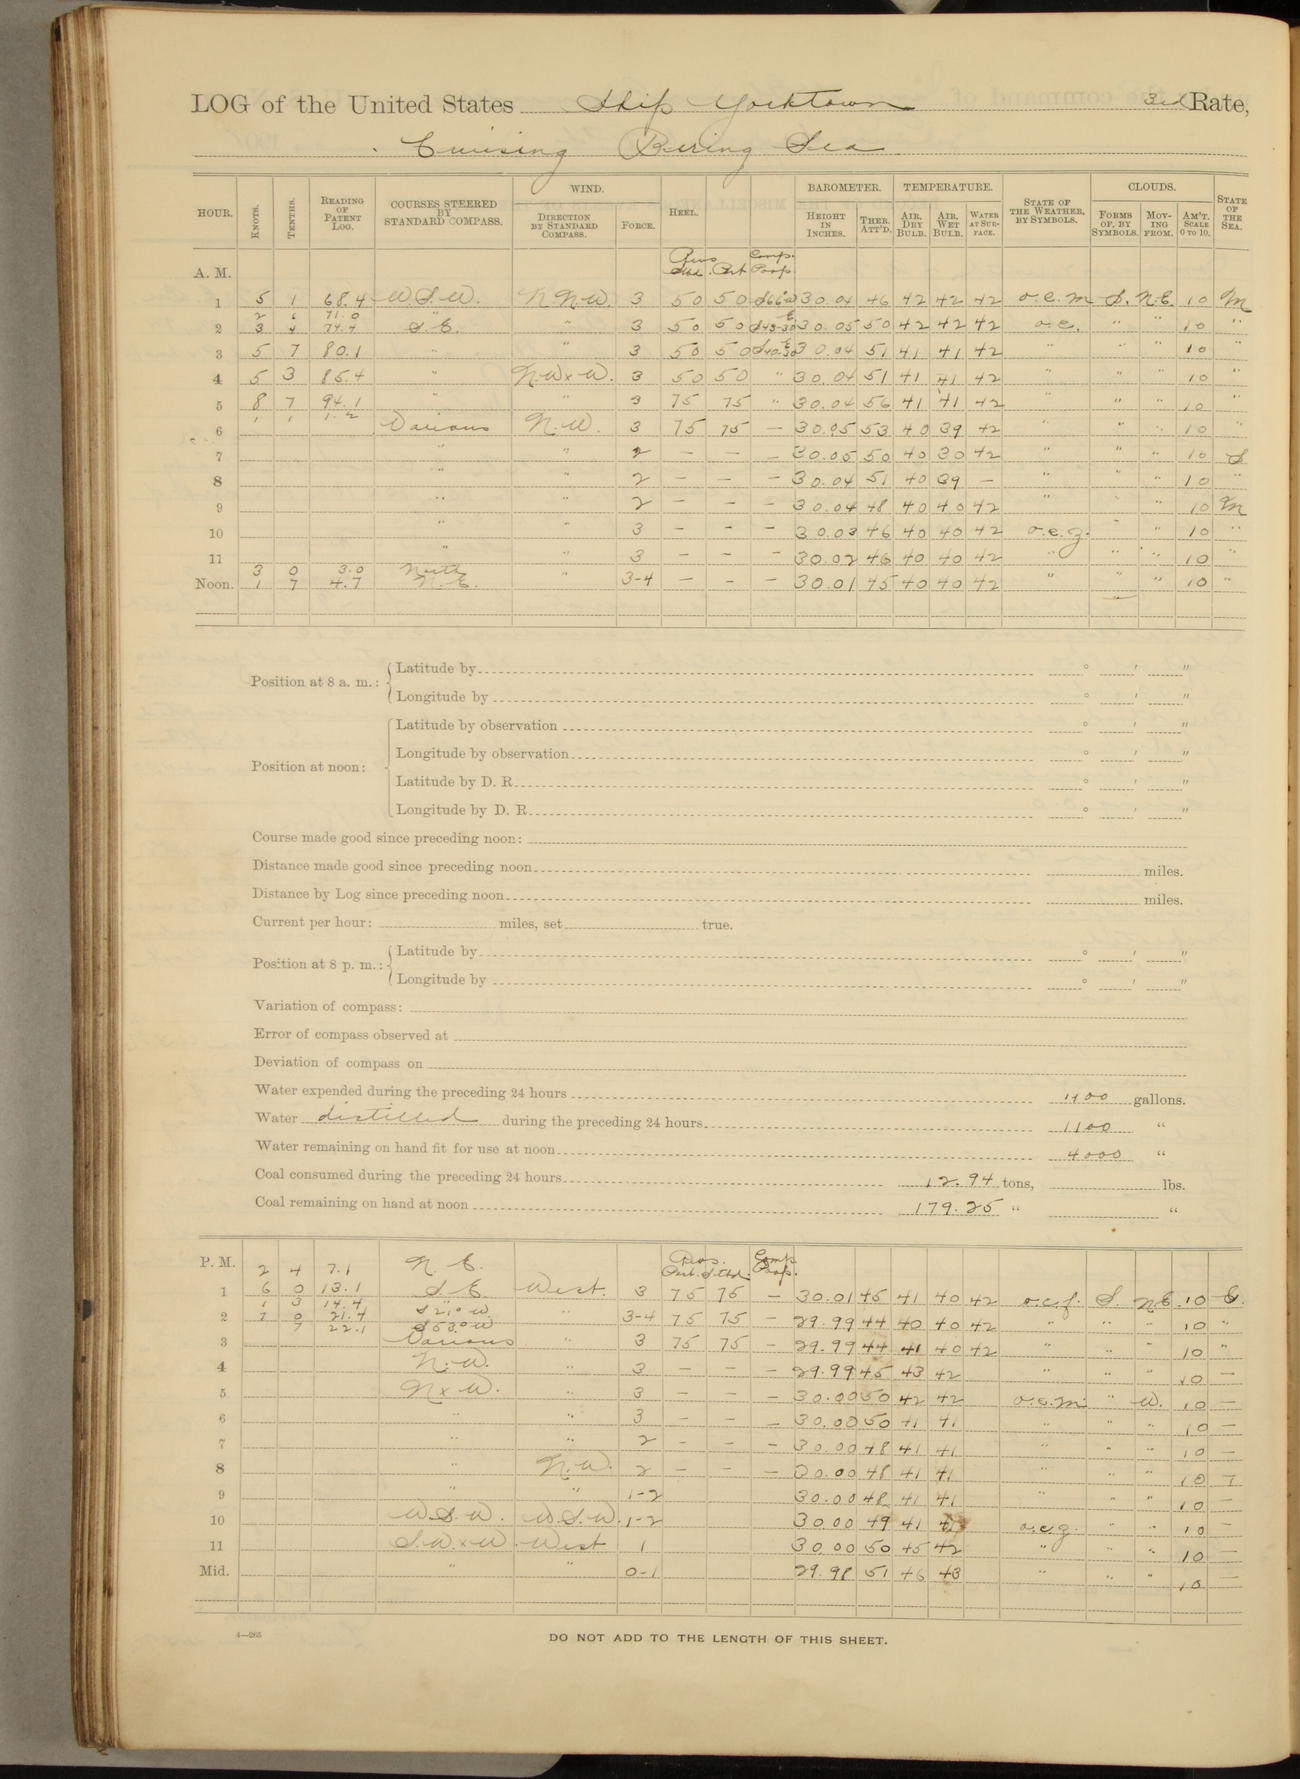 LOG of the United States Ship Yorktown 3rd Rate,
Cruising Bering Sea
HOUR. KNOTS. TENTHS. READING OF PATENT LOG. COURSES STEERED BY STANDARD COMPASS. WIND. DIRECTION BY STANDARD COMPASS. FORCE. HEEL. BAROMETER. HEIGHT IN INCHES. THER. ATT'D. TEMPERATURE. AIR, DRY BULB. AIR, WET BULB. WATER AT SURFACE. STATE OF THE WEATHER, BY SYMBOLS. CLOUDS. FORMS OF, BY SYMBOLS. MOVING FROM. AM'T. SCALE 0 TO 10. STATE OF THE SEA.
A. M. Revs Stbd. Port Comp. Poop
1 5 1 68.4 W.S.W. N.N.W. 3 50 50 30.04 46 42 42 42 o.c.m S. N.E. 10 M
2 6 71.0 "
2 3 4 74.4 S.E. " 3 50 50 30.05 50 42 42 42 o.c. " " 10 "
3 5 7 80.1 " " 3 50 50 30.04 51 41 41 42 " " " 10 "
4 5 3 85.4 " N.W x W. 3 50 50 " 30.04 51 41 41 42 " " " 10 "
5 8 7 94.1 " " 3 75 75 " 30.04 56 41 41 42 " " " 10 "
6 1 1 1.2 Various N.W. 3 75 75 — 30.05 53 40 39 42 " " " 10 "
7 " " 2 — — — 30.05 50 40 30 42 " " " 10 S
8 " " 2 — — — 30.04 51 40 39 — " " " 10 "
9 " " 2 — — — 30.04 48 40 40 42 " " 10 M
10 " " 3 — — — 30.03 46 40 40 42 o.c.z. " 10 "
11 " " 3 — — — 30.02 46 40 40 42 " " " 10 "
3 0 3.0 North
Noon. 1 7 4.7 N.E. " 3-4 — — — 30.01 45 40 40 42 " " " 10 "
Position at 8 a. m.: Latitude by ° ' "
Longitude by ° ' "
Latitude by observation ° ' "
Longitude by observation ° ' "
Position at noon:
Latitude by D. R. ° ' "
Longitude by D. R. ° ' "
Course made good since preceding noon:
Distance made good since preceding noon miles.
Distance by Log since preceding noon miles.
Current per hour: miles, set true.
Position at 8 p. m.: Latitude by ° ' "
Longitude by ° ' "
Variation of compass:
Error of compass observed at
Deviation of compass on
Water expended during the preceding 24 hours 1100 gallons.
Water distilled during the preceding 24 hours 1100 "
Water remaining on hand fit for use at noon 4000 "
Coal consumed during the preceding 24 hours 12.94 tons, lbs.
Coal remaining on hand at noon 179.25 " "
P. M. 2 4 7.1 N.E. Revs. Port. Stbd. Comp Poop.
1 6 0 13.1 S.E. West. 3 75 75 — 30.01 45 41 40 42 o.c.f. S. NE. 10 S.
1 3 14.4 S 21° W
2 7 0 21.4 S 53° W " 3-4 75 75 — 29.99 44 40 40 42 " " " 10 "
7 22.1
3 Various " 3 75 75 — 29.99 44 41 40 42 " " " 10 "
4 N.W. " 3 — — — 29.99 45 43 42 " " " 10 —
5 N x W. " 3 — — — 30.00 50 42 42 o.c.m. " W. 10 —
6 " " 3 — — — 30.00 50 41 41 " " " 10 —
7 " " 2 — — — 30.00 48 41 41 " " " 10 —
8 " N.W. 2 — — — 30.00 48 41 41 " " " 10 —
9 " " 1-2 30.00 48 41 41 " " " 10 —
10 W.S.W. W.S.W. 1-2 30.00 49 41 41 o.c.z. " " 10 —
11 S.W. x W. West 1 30.00 50 45 42 " " " 10 —
Mid. " " 0-1 29.98 51 46 43 " " " 10 —
4—265
DO NOT ADD TO THE LENGTH OF THIS SHEET.